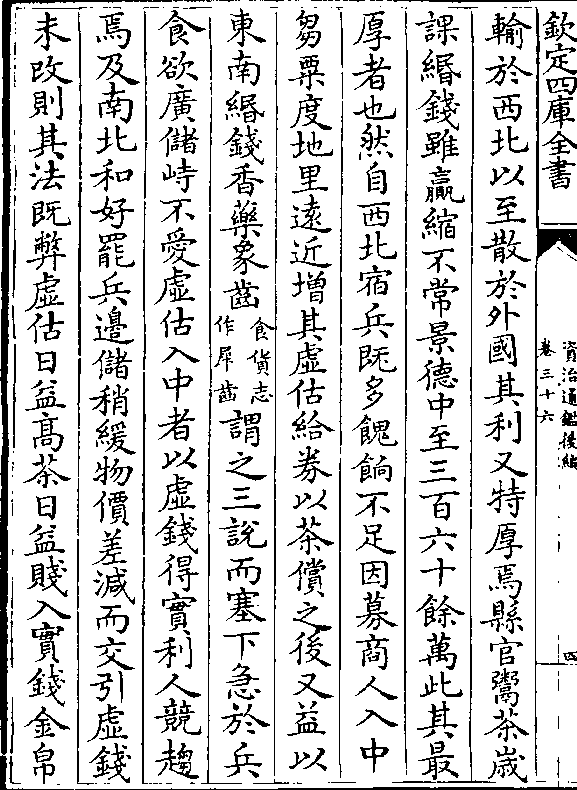 欽定四庫全書
資治通鑑後編
卷三十六
四
輸於西北以至散於外國其利又特厚焉縣官鬻茶歳
課緡錢雖贏縮不常景德中至三百六十餘萬此其最
厚者也然自西北宿兵既多餽餉不足因募商人入中
芻粟度地里遠近増其虛估給劵以茶償之後又益以
東南緡錢香藥象齒食貨志作犀齒謂之三說而塞下急於兵
食欲廣儲峙不愛虛估入中者以虛錢得實利人競趨
焉及南北和好罷兵邊儲稍緩物價差減而交引虛錢
未改則其法既弊虛估日益髙茶日益賤入實錢金帛